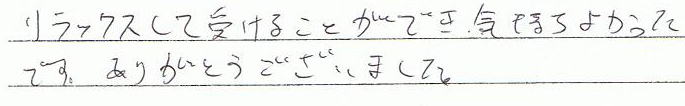 リラックスして受けることができ、気持ちよかった
です。ありがとうございました。